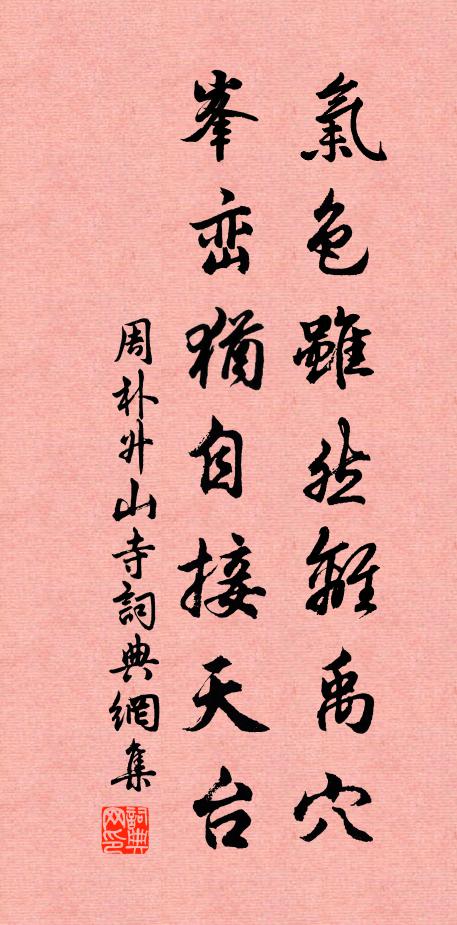 氣色雖然離禹穴
峯巒猶自接天台
周朴升山寺詞典網集
詞典网印